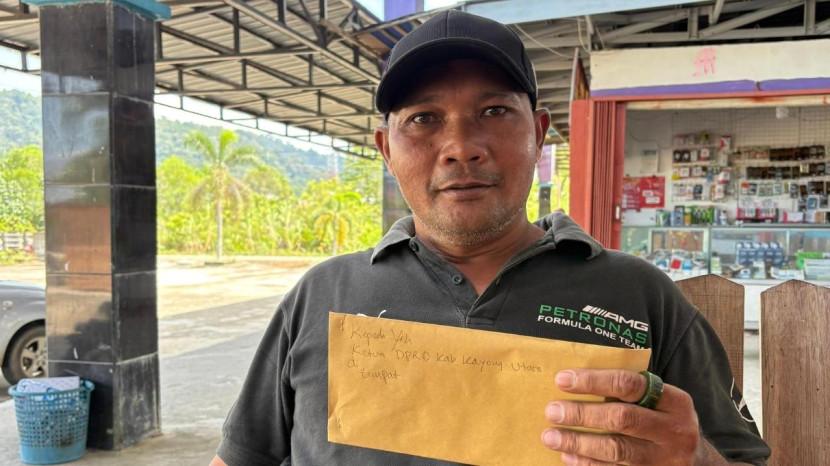 AMG
PETRONAS
FORMULA ONE TEAM
Kepada Yth
Ketua DPRD Kab Kayong Utara
di
tempat